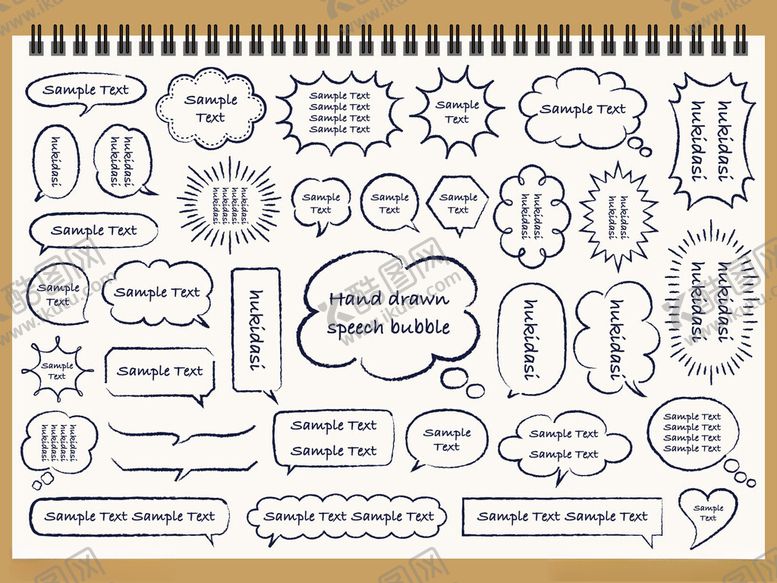 Sample Text
Sample
Text
Sample Text
Sample Text
Sample Text
Sample Text
Sample
Text
Sample Text
hukidasi
hukidasi
hukidasi
hukidasi
hukidasi
hukidasi
hukidasi
hukidasi
hukidasi
Sample
Text
Sample
Text
Sample
Text
hukidasi
hukidasi
hukidasi
hukidasi
Sample Text
Sample
Text
Sample Text
hukidasi
Hand drawn
speech bubble
hukidasi
hukidasi
hukidasi
hukidasi
Sample
Text
Sample Text
hukidasi
hukidasi
hukidasi
hukidasi
Sample Text
Sample Text
Sample
Text
Sample Text
Sample Text
Sample Text
Sample Text
Sample Text
Sample Text
Sample Text Sample Text
Sample Text Sample Text
Sample Text Sample Text
Sample
Text